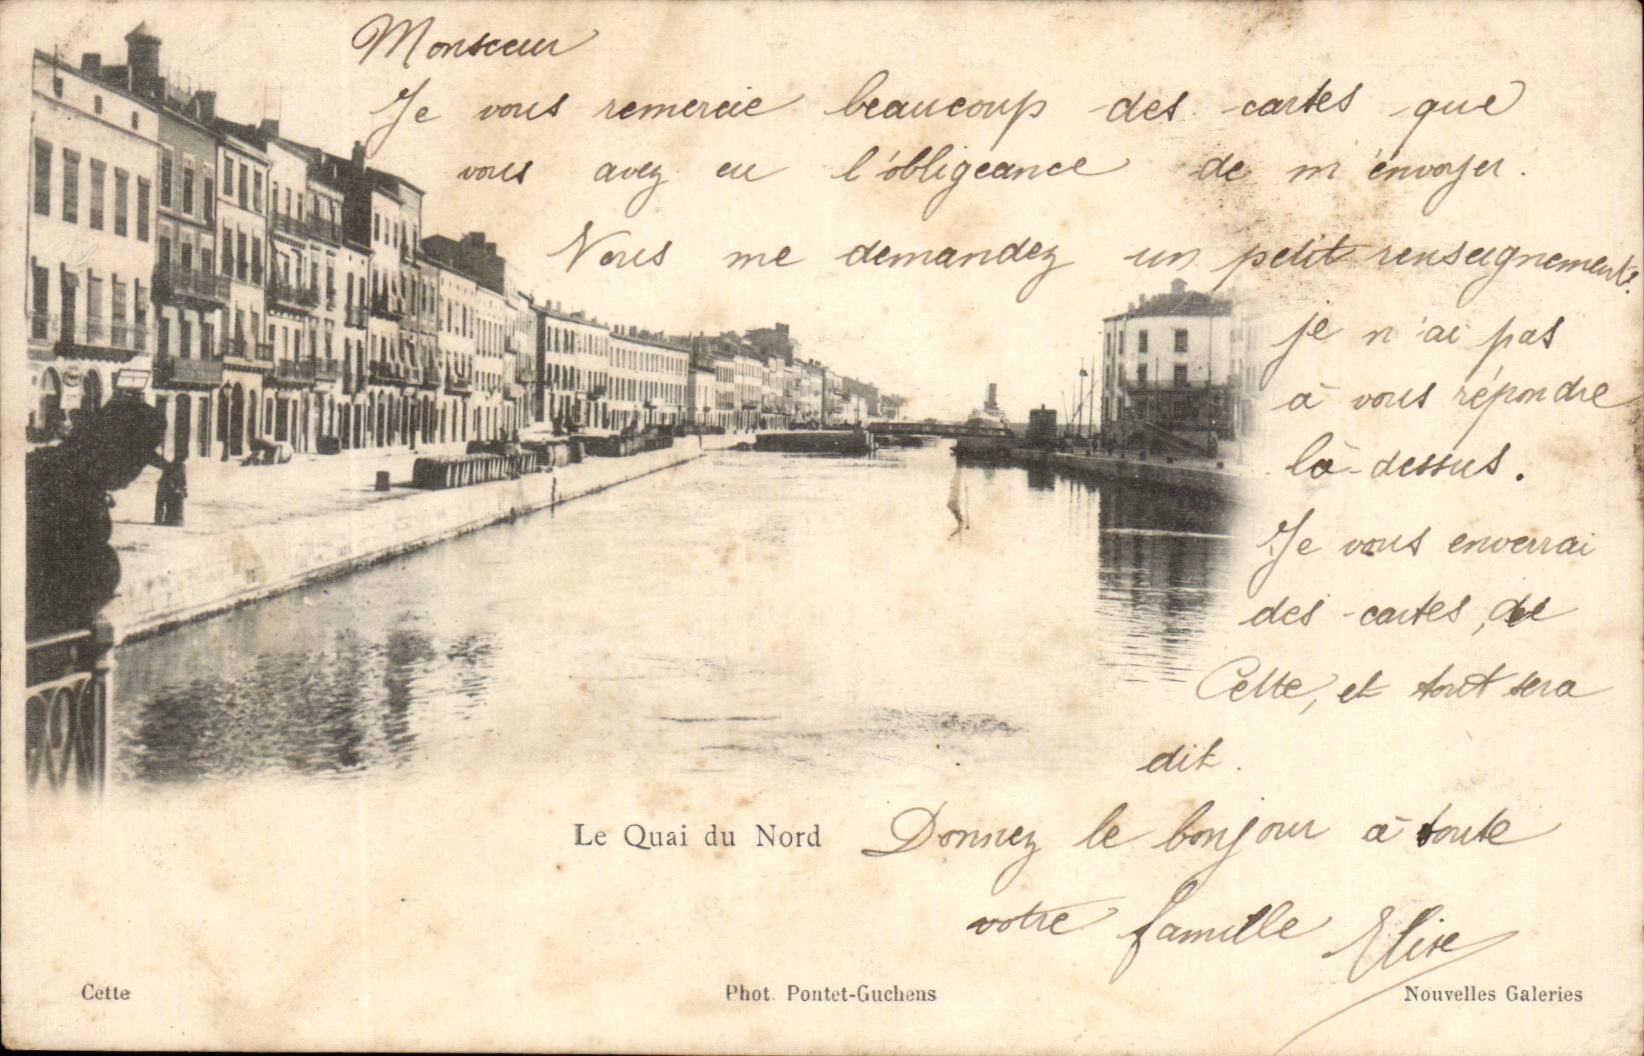 Monsieur
Je vous remercie beaucoup des cartes que
vous avez eu l'obligeance de m'envoyer.
Vous me demandez un petit renseignement.
je n'ai pas
à vous répondre
là-dessus.
Je vous enverrai
des cartes, de
Cette, et tout sera
dit.
Le Quai du Nord
Donnez le bonjour à toute
votre famille Elise
Cette
Phot. Pontet-Guchens
Nouvelles Galeries